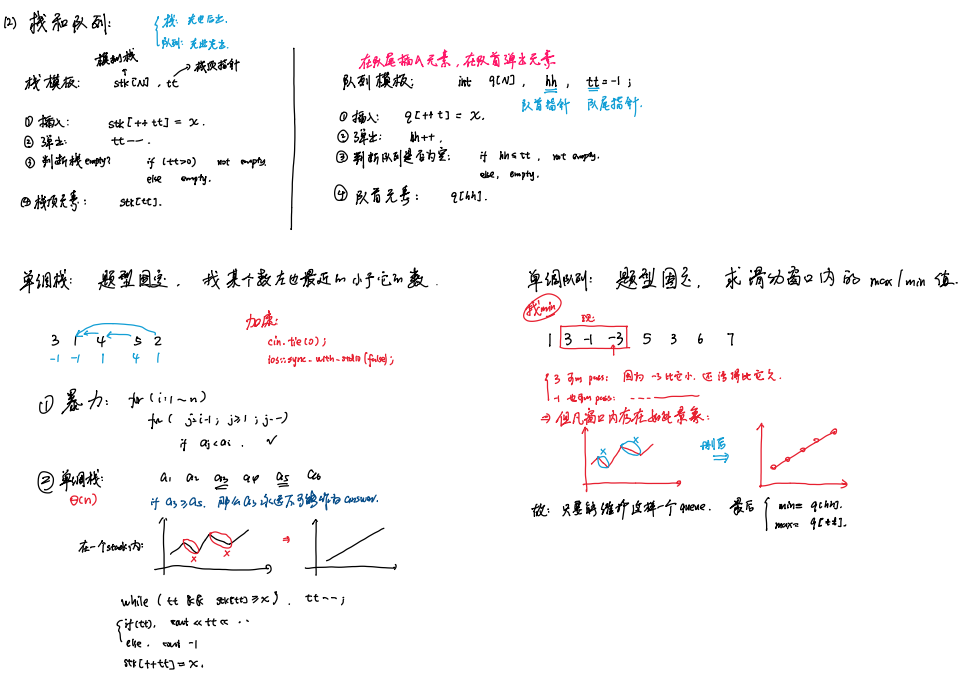 (2) 栈和队列:
栈: 先进后出.
队列: 先进先出.
模拟栈
栈顶指针
栈模板: stk[N], tt
① 插入: stk[++tt] = x.
② 弹出: tt--.
③ 判断栈empty? if (tt>0) not empty
else empty.
④ 栈顶元素: stk[tt].
在队尾插入元素, 在队首弹出元素
队列模板: int q[N], hh, tt=-1;
队首指针 队尾指针.
① 插入: q[++tt] = x.
② 弹出: hh++.
③ 判断队列是否为空: if hh≤tt, not empty.
else, empty.
④ 队首元素: q[hh].
单调栈: 题型固定, 找某个数左边最近的小于它的数.
3 1 4 5 2
-1 -1 1 4 1
加速:
cin.tie(0);
ios::sync_with_stdio(false);
① 暴力: for (i:1~n)
for ( j=i-1; j≥1; j--)
if aj<ai. ✓
② 单调栈: a1 a2 a3 a4 a5 a6
Θ(n)
if a3≥a5, 那么a3永远不可能作为answer.
在一个stack内:
x x
⇒
while (tt && stk[tt]≥x). tt--;
if(tt), cout << tt << ..
else. cout -1
stk[++tt]=x.
单调队列: 题型固定, 求滑动窗口内的max/min值.
找min
1 3 -1 -3 5 3 6 7
3 可以pass: 因为-3比它小, 还活得比它久.
-1 也可以pass: ----
⇒ 但凡窗口内存在如此景象:
x x
删后
⇒
故: 只要能维护这样一个queue. 最后
min= q[hh].
max= q[tt].